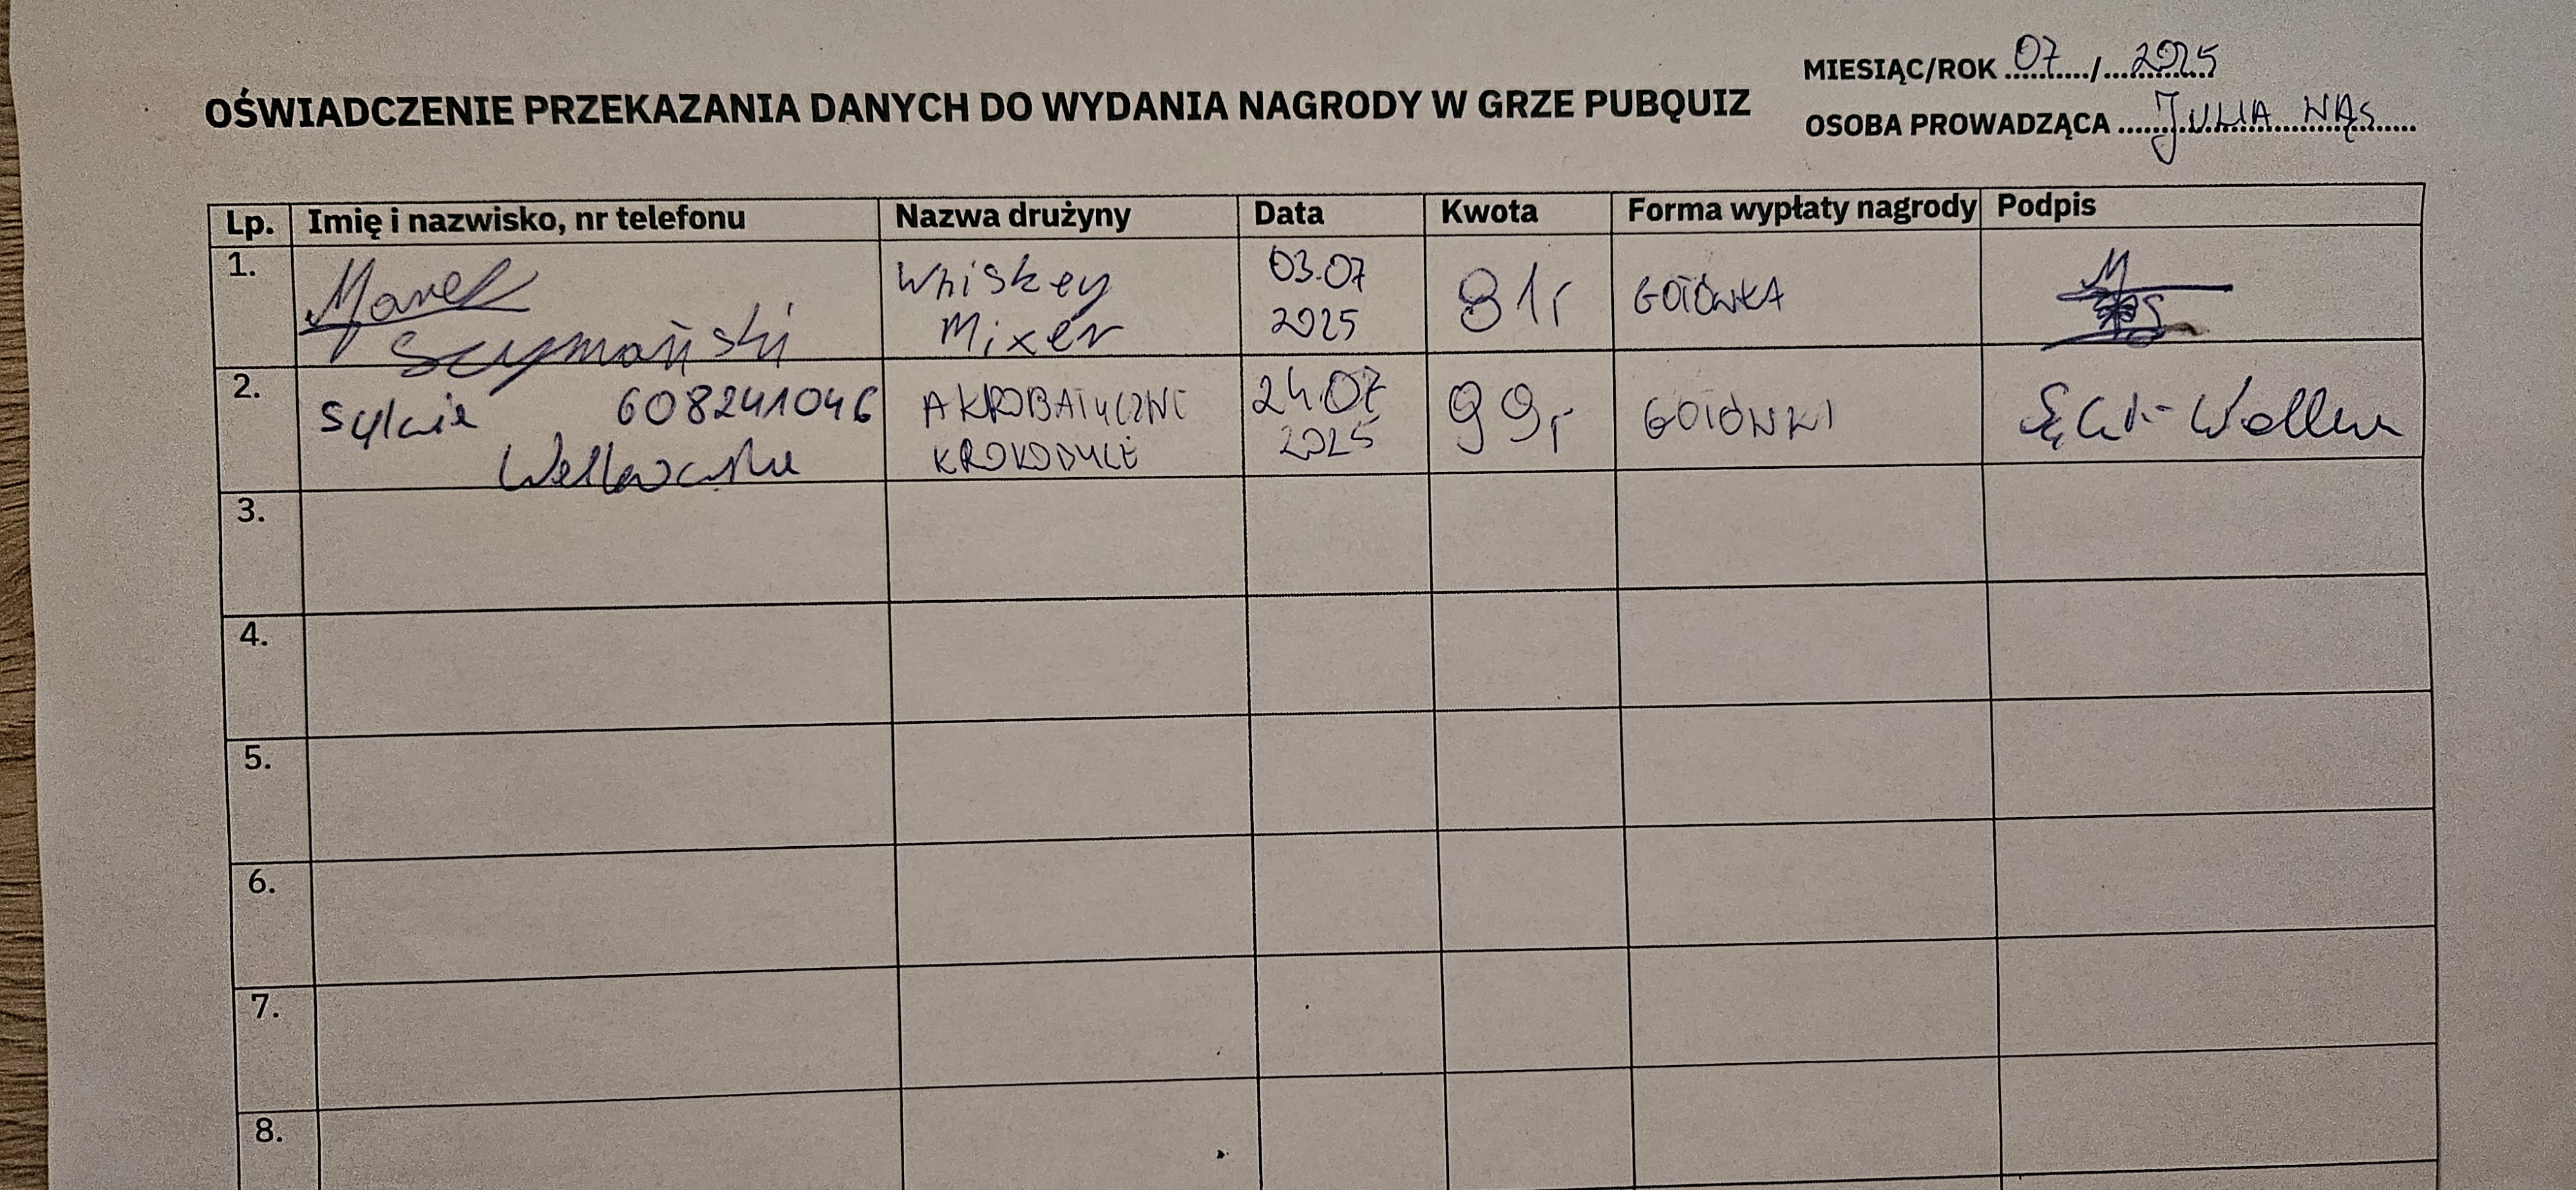 MIESIĄC/ROK 07 / 2025
OŚWIADCZENIE PRZEKAZANIA DANYCH DO WYDANIA NAGRODY W GRZE PUBQUIZ
OSOBA PROWADZĄCA JULIA WĄS
Lp. Imię i nazwisko, nr telefonu Nazwa drużyny Data Kwota Forma wypłaty nagrody Podpis
1. Marek Whiskey 03.07 81,- GOTÓWKA
Szymański Mixer 2025
2. Sylwia 608241046 AKROBATYCZNE 24.07 99,- GOTÓWKA
KROKODYLE 2025
3.
4.
5.
6.
7.
8.